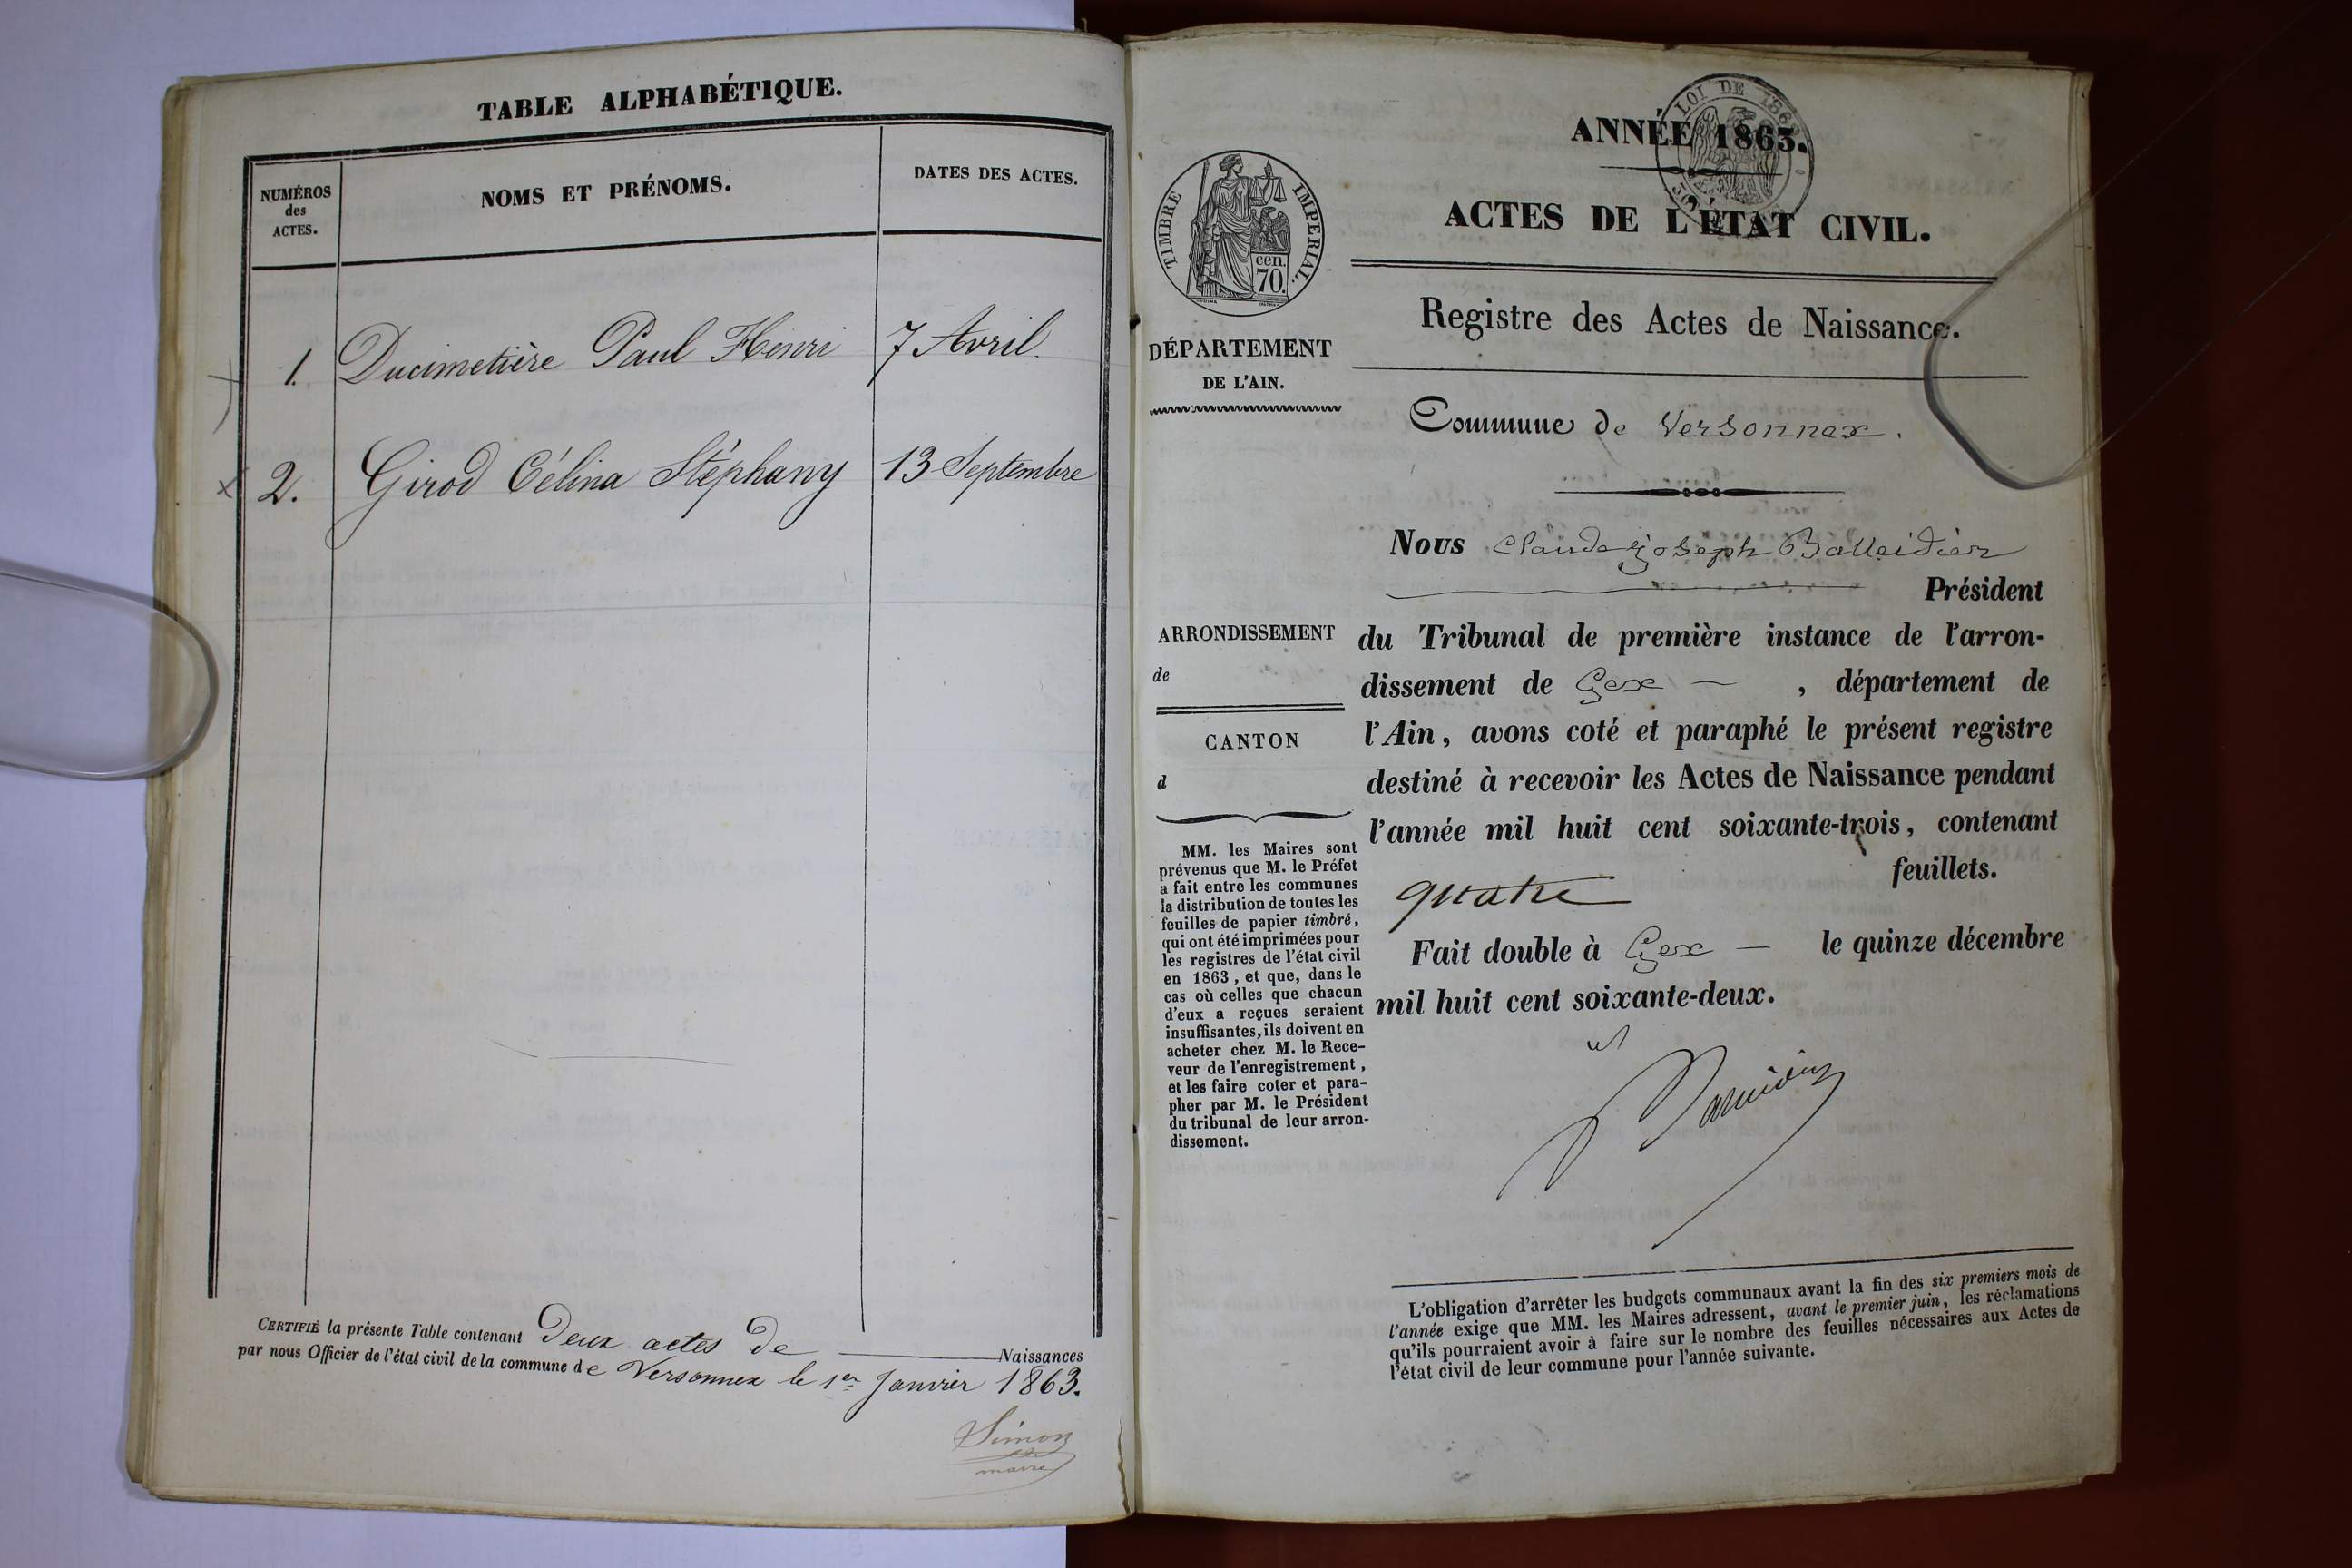 TABLE ALPHABÉTIQUE.
NUMÉROS
des
ACTES.
NOMS ET PRÉNOMS.
DATES DES ACTES.
1. Ducimetière Paul Henri 7 Avril.
2. Girod Célina Stéphany 13 Septembre
CERTIFIÉ la présente Table contenant Deux actes De Naissances
par nous Officier de l'état civil de la commune de Versonnex le 1er Janvier 1863.
Simon
maire
LOI DE 1862
ANNÉE 1863.
ACTES DE L'ÉTAT CIVIL.
TIMBRE IMPERIAL.
cen.
70.
DÉPARTEMENT
DE L'AIN.
Registre des Actes de Naissance.
Commune de Versonnex.
Nous Claude Joseph Balleidier
Président
du Tribunal de première instance de l'arron-
dissement de Gex — , département de
l'Ain, avons coté et paraphé le présent registre
destiné à recevoir les Actes de Naissance pendant
l'année mil huit cent soixante-trois, contenant
quatre feuillets.
Fait double à Gex — le quinze décembre
mil huit cent soixante-deux.
ARRONDISSEMENT
de
CANTON
d
MM. les Maires sont
prévenus que M. le Préfet
a fait entre les communes
la distribution de toutes les
feuilles de papier timbré,
qui ont été imprimées pour
les registres de l'état civil
en 1863, et que, dans le
cas où celles que chacun
d'eux a reçues seraient
insuffisantes, ils doivent en
acheter chez M. le Rece-
veur de l'enregistrement,
et les faire coter et para-
pher par M. le Président
du tribunal de leur arron-
dissement.
L'obligation d'arrêter les budgets communaux avant la fin des six premiers mois de
l'année exige que MM. les Maires adressent, avant le premier juin, les réclamations
qu'ils pourraient avoir à faire sur le nombre des feuilles nécessaires aux Actes de
l'état civil de leur commune pour l'année suivante.